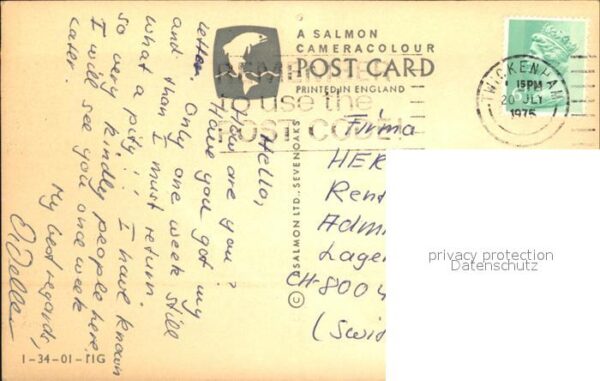 A SALMON
CAMERACOLOUR
POST CARD
PRINTED IN ENGLAND
REMEMBER
to use the
POST CODE
TWICKENHAM
PM
20 JLY
1975
Hello,
How are you?
Have you got my
letter. Only one week still
and than I must return.
What a pity!! I have known
so very kindly people here.
I will see you one week
later.
My best regards,
© J SALMON LTD., SEVENOAKS
Firma
HER
Rent
Admi
Lager
CH-8004
(Swi
privacy protection
Datenschutz
1-34-01-11G